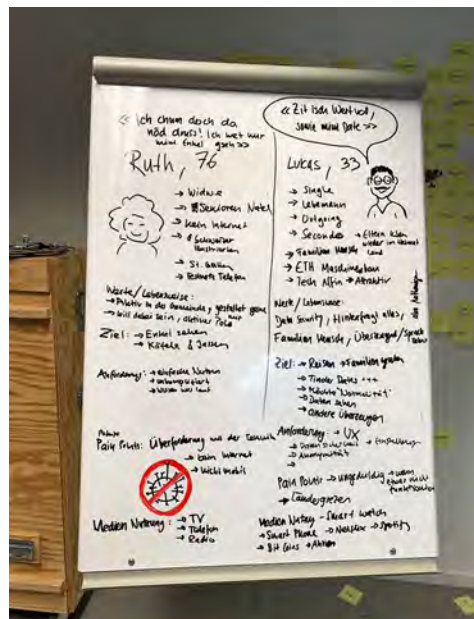 « Ich chum doch da
nöd druss! Ich wet nur
mini Enkel gseh »
Ruth, 76
→ Witwe
→ Senioren Natel
→ kein Internet
→ St. Gallen
→ Festnetz Telefon
Werte / Lebensweise:
→ Aktiv in der Gemeinde, gestaltet gerne
→ will dabei sein, aktive Rolle
Ziel: → Enkel sehen
→ Käfele & Jassen
Anforderung: → einfache Nutzung
→ unkompliziert
→ Wissen was lauft
Pain Points: Überforderung mit der Technik
→ kein Internet
→ nicht mobil
Medien Nutzung: → TV
→ Telefon
→ Radio
« Zit isch Wertvoll,
sowie mini Date »
Lukas, 33
→ Single
→ Lebemann
→ Outgoing
→ Secondos → Eltern leben
wieder im Heimat
land
→ Familien Mensch
→ ETH Maschinenbau
→ Tech Affin → Attraktiv
Werte / Lebensweise:
Data Security, Hinterfragt alles,
Familien Mensch, Überzeugend /
Ziel: → Reisen → Familien
→ Tinder Dates +++
→ Möchte "Normalität"
→ Daten
→ andere überzeugen
Anforderung: → UX
→ Datensicherheit → Einstellungen
→ Anonymität
Pain Points → ungeduldig → wenn
etwas nicht
funktioniert
→ Ländergrenzen
Medien Nutzung → Smart watch
→ Smart Phone → Netflix → Spotify
→ Bit Coins → Aktien